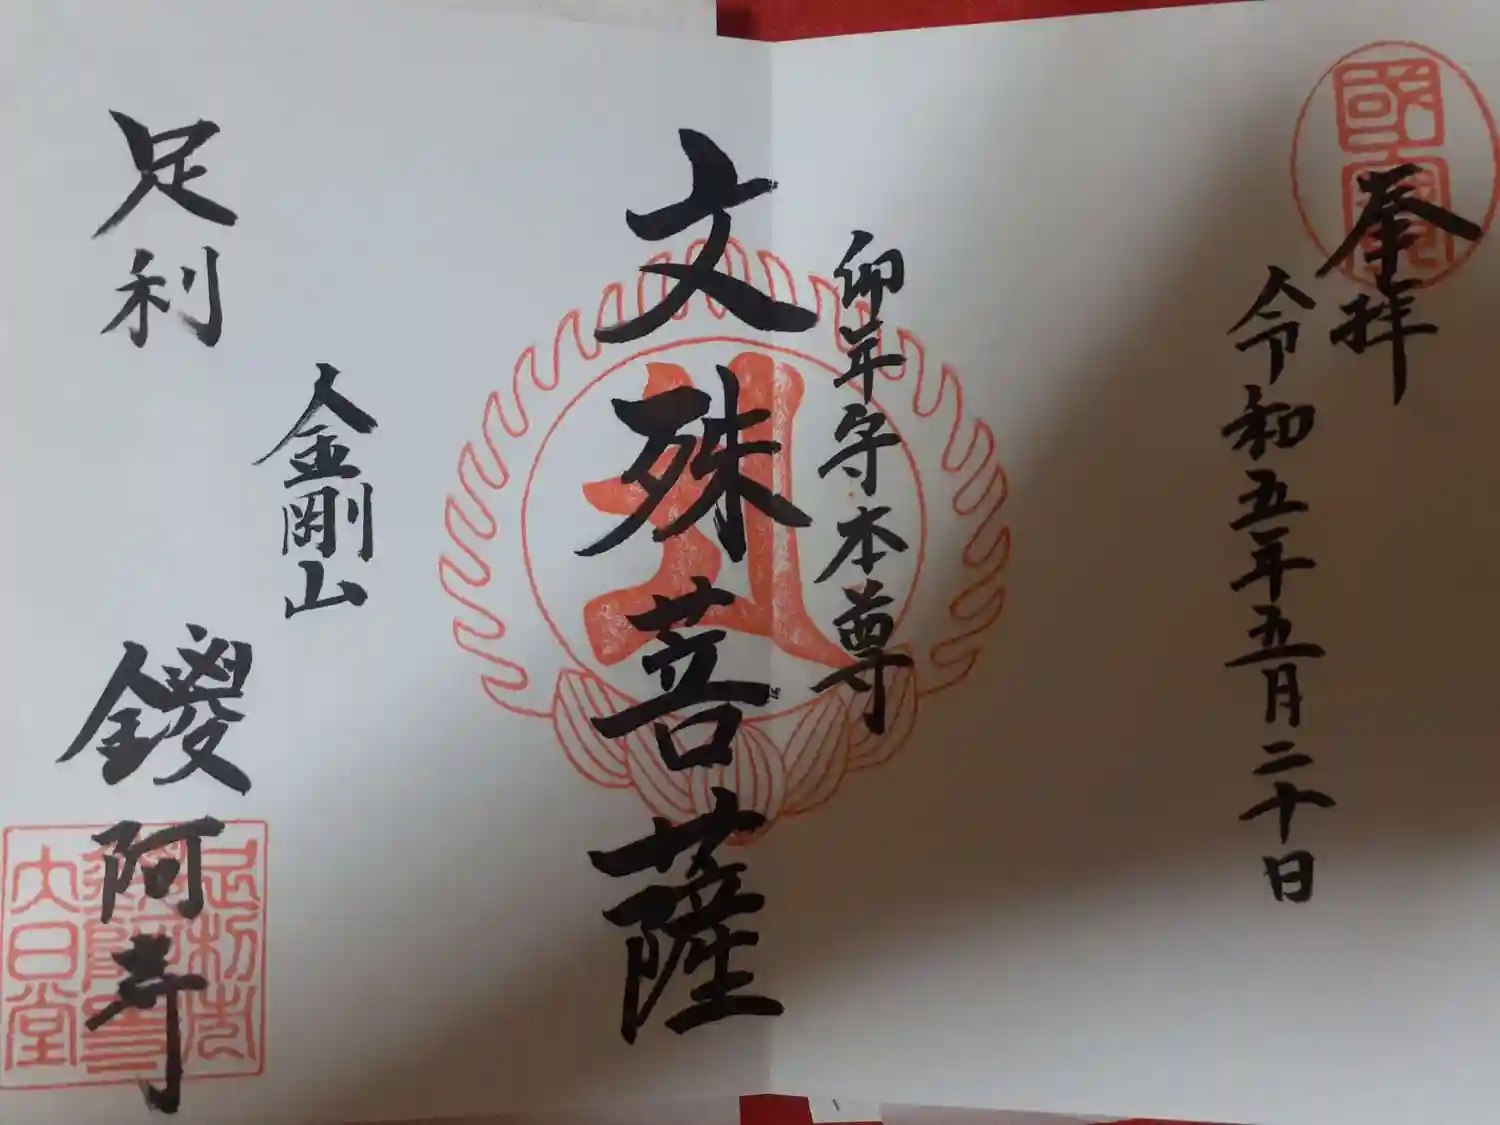 奉拝
國寳
令和五年五月二十日
卯年守本尊
文殊菩薩
金剛山
足利
鑁阿寺
大日堂